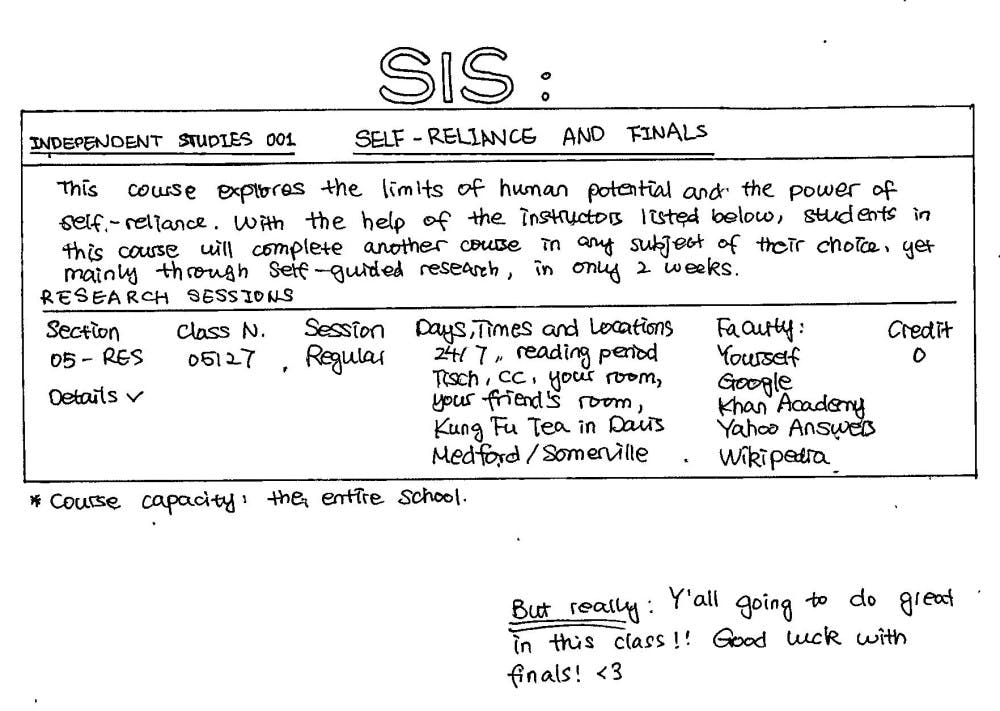 SIS :
INDEPENDENT STUDIES 001 SELF-RELIANCE AND FINALS
This course explores the limits of human potential and the power of
self-reliance. With the help of the instructors listed below, students in
this course will complete another course in any subject of their choice, yet
mainly through self-guided research, in only 2 weeks.
RESEARCH SESSIONS
Section Class N. Session Days, Times and Locations Faculty: Credit
05-RES 05127 Regular 24/7, reading period Yourself 0
Tisch, CC, your room, Google
Details ✓ your friend's room, Khan Academy
Kung Fu Tea in Davis Yahoo Answers
Medford/Somerville Wikipedia
* Course capacity: the entire school.
But really: Y'all going to do great
in this class!! Good luck with
finals! <3